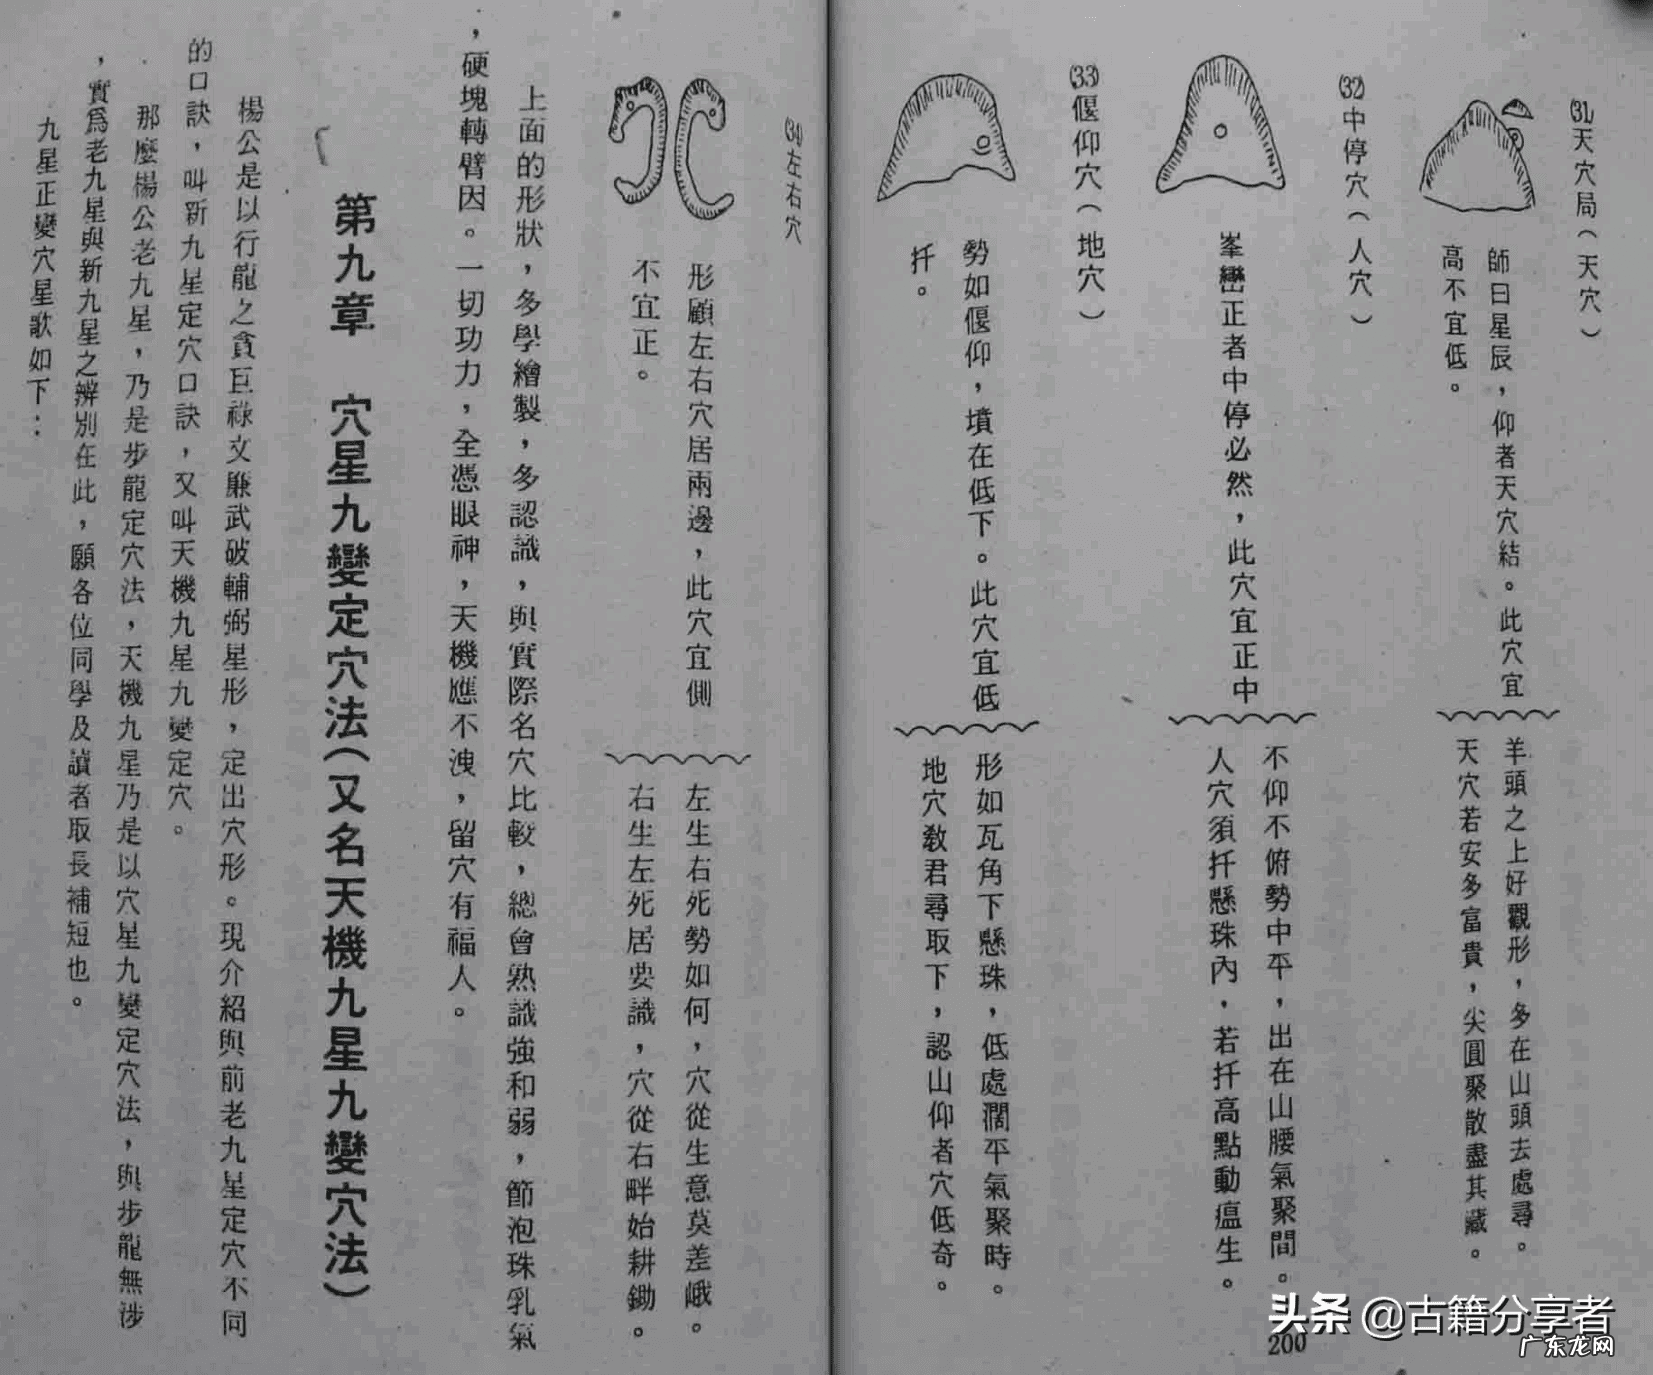 (31)天穴局（天穴）
師曰星辰，仰者天穴結。此穴宜
高不宜低。
羊頭之上好觀形，多在山頭去處尋。
天穴若安多富貴，尖圓聚散盡其藏。
(32)中停穴（人穴）
峯巒正者中停必然，此穴宜正中
不仰不俯勢中平，出在山腰氣聚間。
人穴須扦懸珠內，若扦高點動瘟生。
(33)偃仰穴（地穴）
勢如偃仰，墳在低下。此穴宜低
扦。
形如瓦角下懸珠，低處濶平氣聚時。
地穴敎君尋取下，認山仰者穴低奇。
200
(34)左右穴
形顧左右穴居兩邊，此穴宜側
不宜正。
左生右死勢如何，穴從生意莫差峨。
右生左死居要識，穴從右畔始耕鋤。
上面的形狀，多學繪製，多認識，與實際名穴比較，總會熟識強和弱，節泡珠乳氣
，硬塊轉臂因。一切功力，全憑眼神，天機應不洩，留穴有福人。
第九章　穴星九變定穴法（又名天機九星九變穴法）
楊公是以行龍之貪巨祿文廉武破輔弼星形，定出穴形。現介紹與前老九星定穴不同
的口訣，叫新九星定穴口訣，又叫天機九星九變定穴。
那麼楊公老九星，乃是步龍定穴法，天機九星乃是以穴星九變定穴法，與步龍無涉
，實爲老九星與新九星之辨別在此，願各位同學及讀者取長補短也。
九星正變穴星歌如下：
头条 @古籍分享者
广东龙网